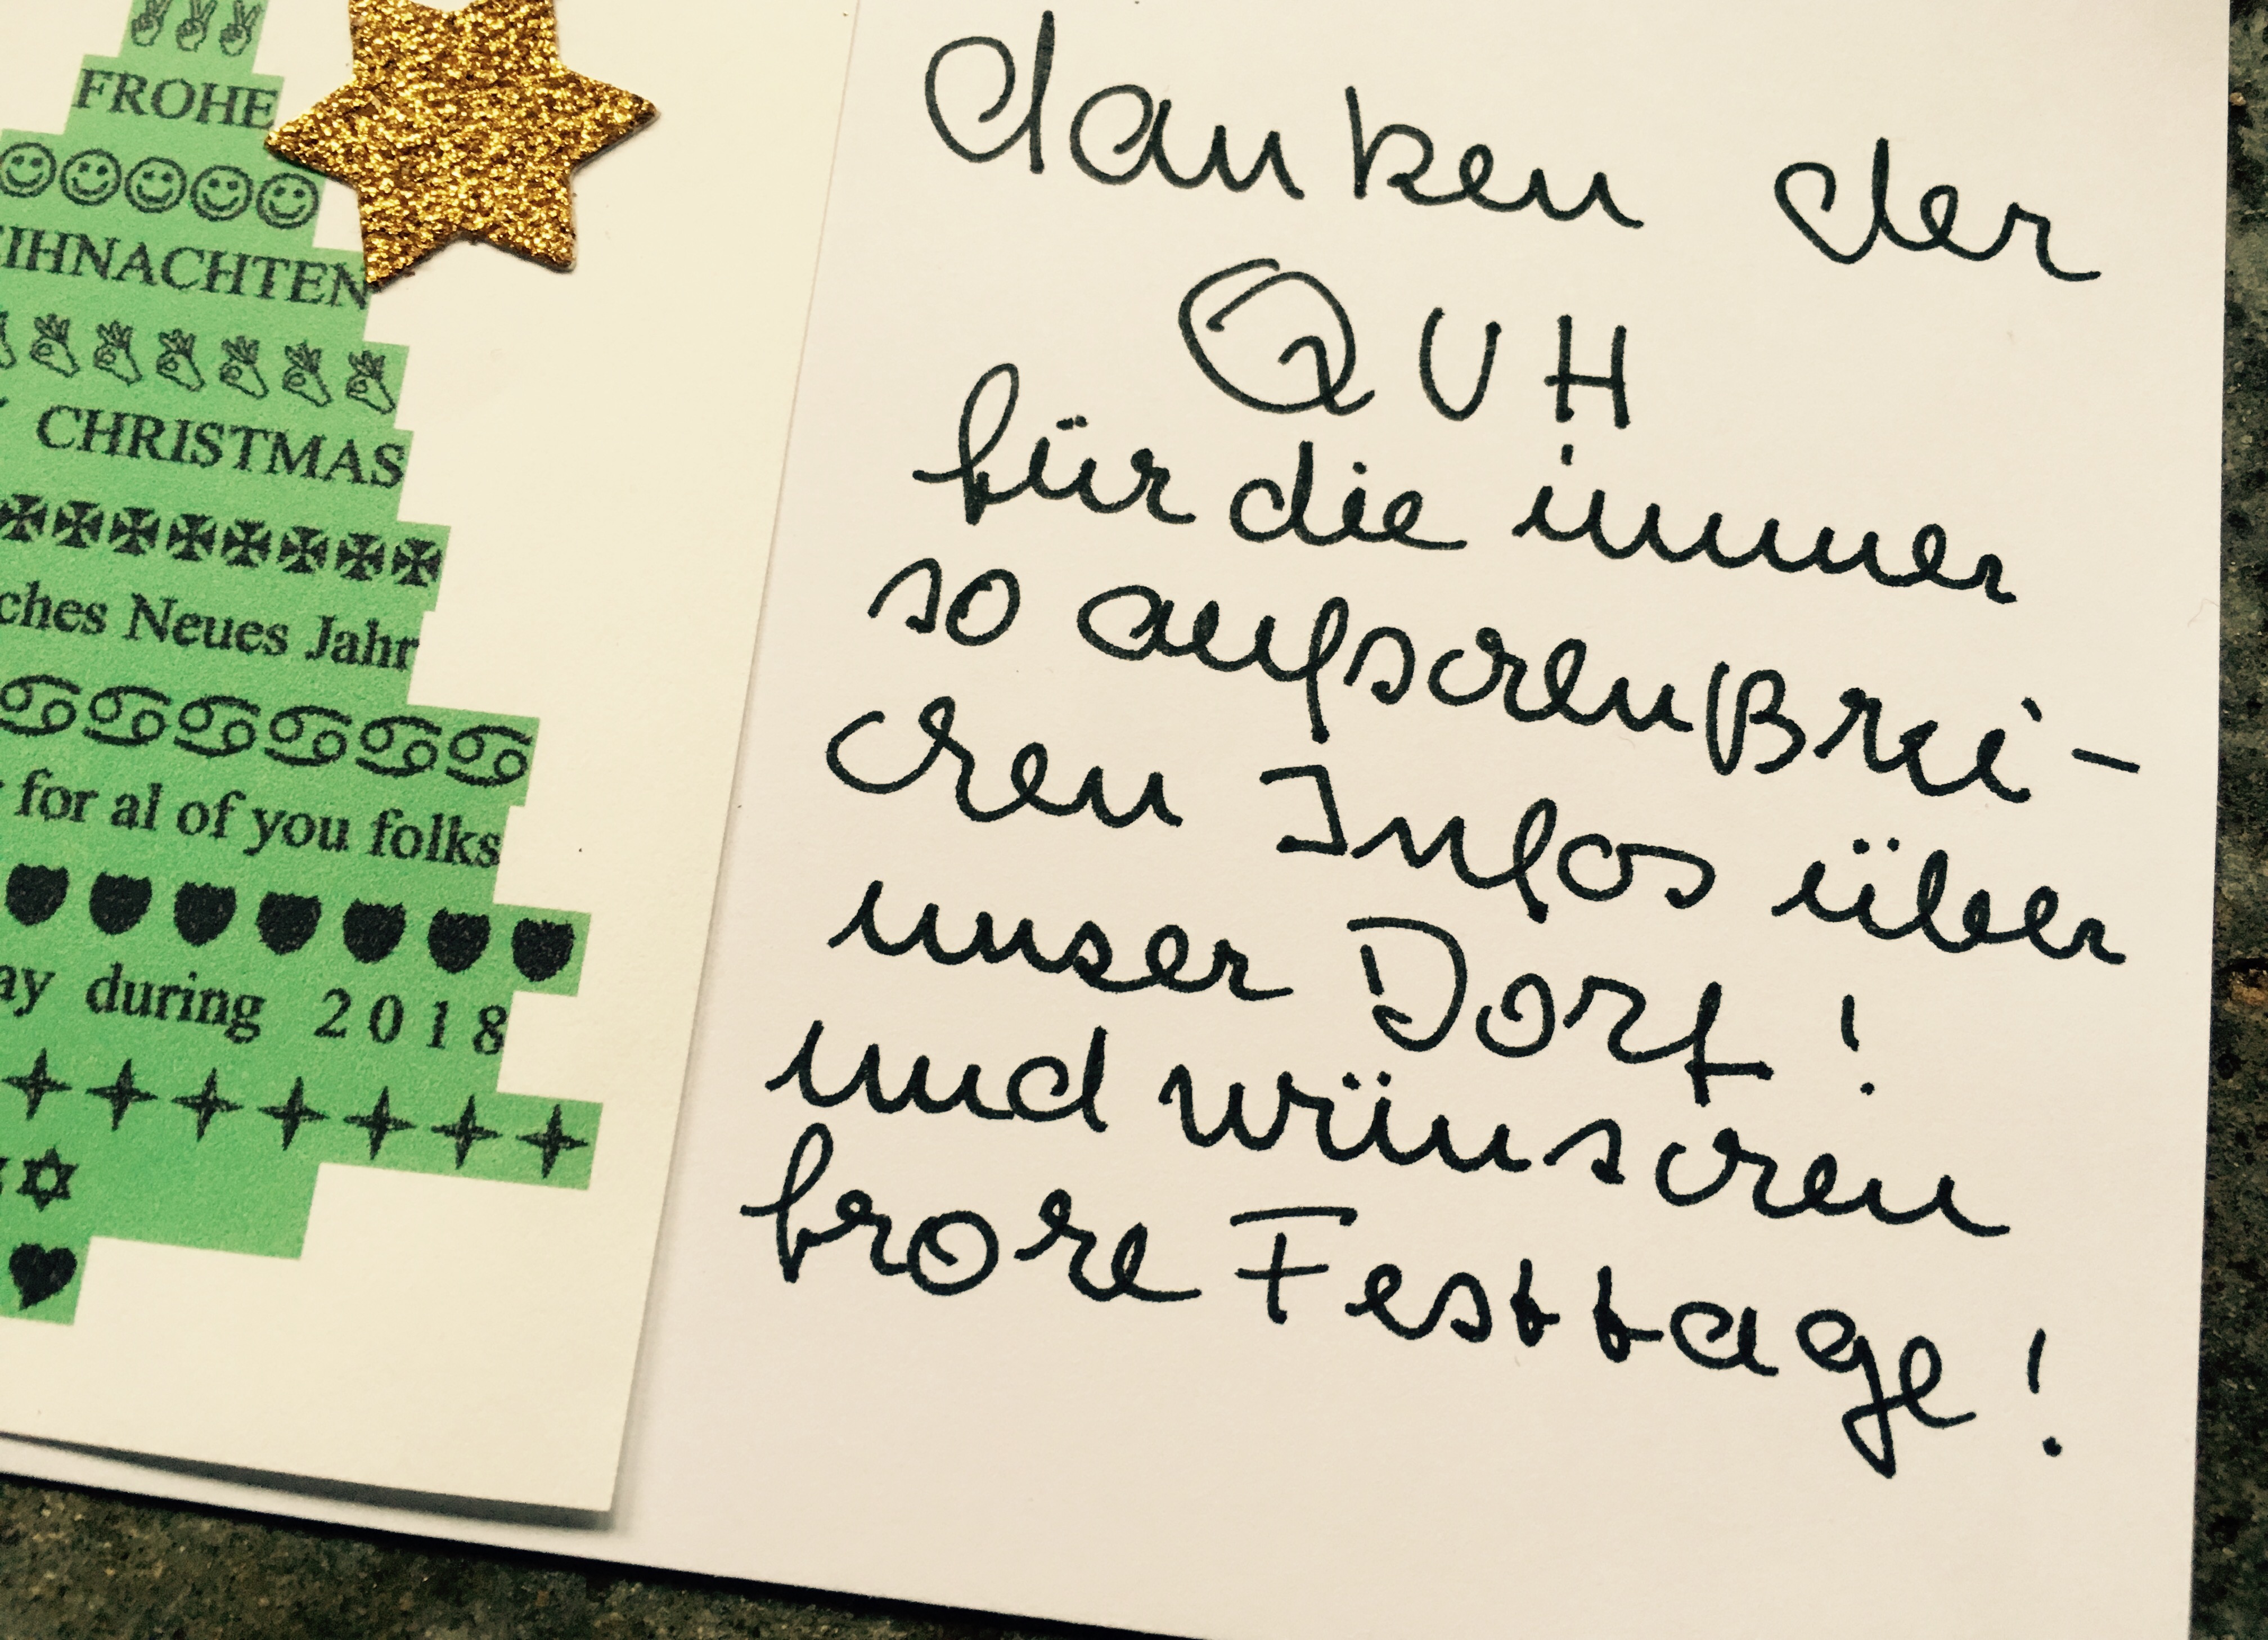 FROHE
EIHNACHTEN
CHRISTMAS
ches Neues Jahr
for al of you folks
ay during 2 0 1 8
danken der
QUH
für die immer
so aufschlußrei-
chen Infos über
unser Dorf!
und wünschen
frohe Festtage!